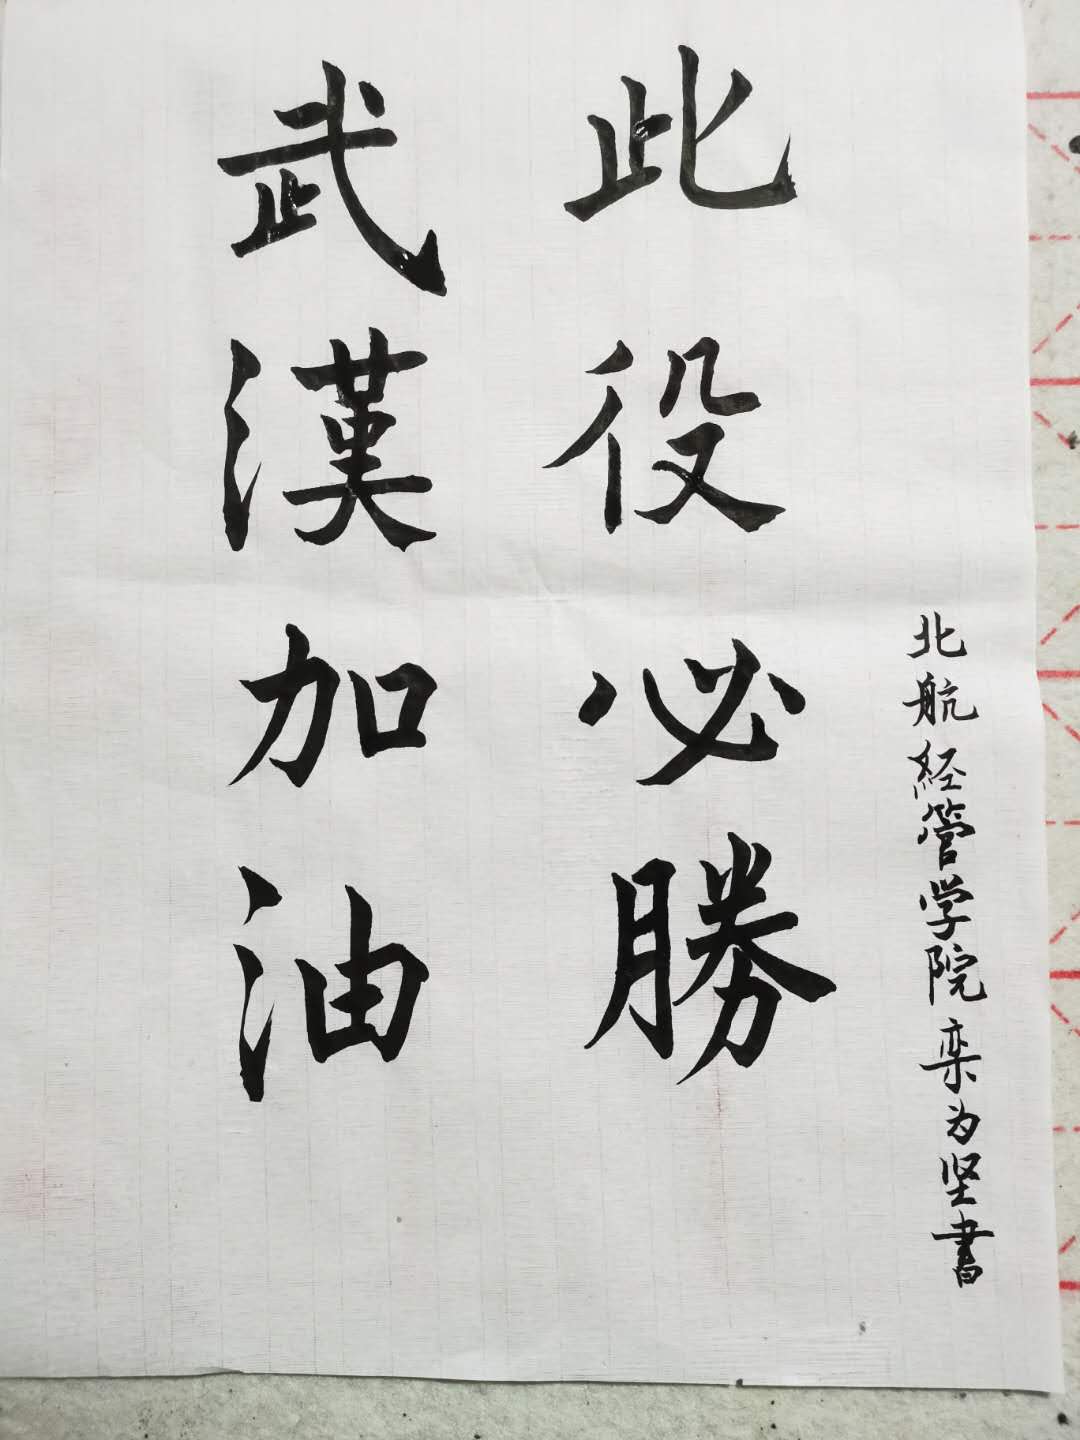 此役必勝
武漢加油
北航经管学院栾为坚書